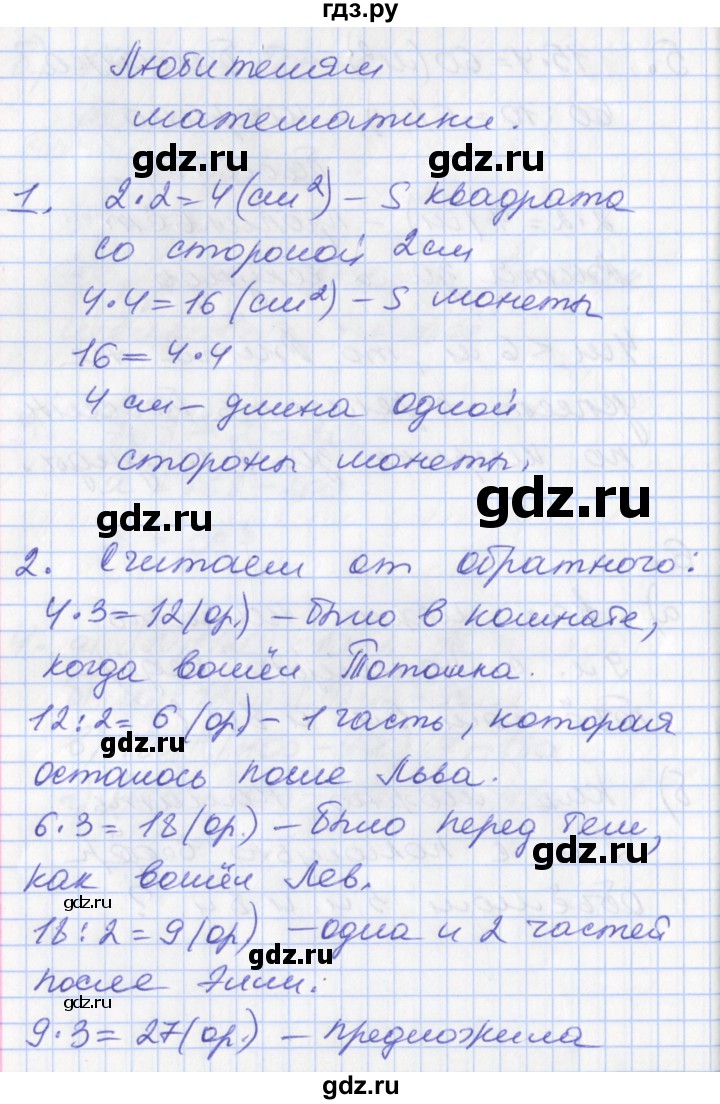 гдз.ру
Любителям
математики.
gdz.ru
gdz.ru
1. 2·2=4(см²) – S квадрата
со стороной 2см
4·4=16(см²) – S монеты
16=4·4
4 см – длина одной
стороны монеты.
gdz.ru
gdz.ru
2. Считаем от обратного:
4·3=12(ор.) – было в комнате,
когда вошёл Тотошка.
12:2=6(ор) – 1 часть, которая
gdz.ru
осталось после Льва.
6·3=18(ор.) – было перед тем,
gdz.ru
как вошёл Лев.
gdz.ru
18:2=9(ор) – одна и 2 частей
gdz.ru
после Элли.
gdz.ru
9·3=27(ор.) – предложила
gdz.ru
gdz.ru